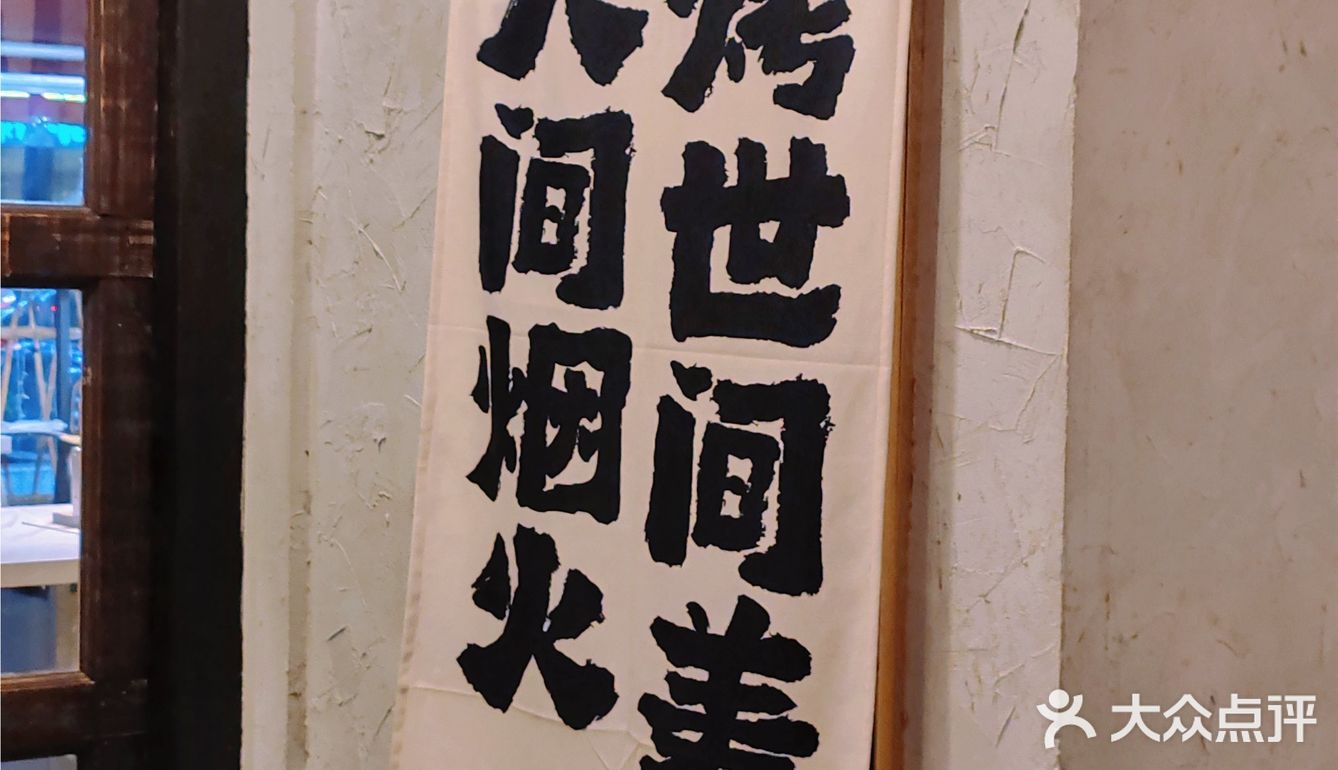 烤世间美
人间烟火
大众点评